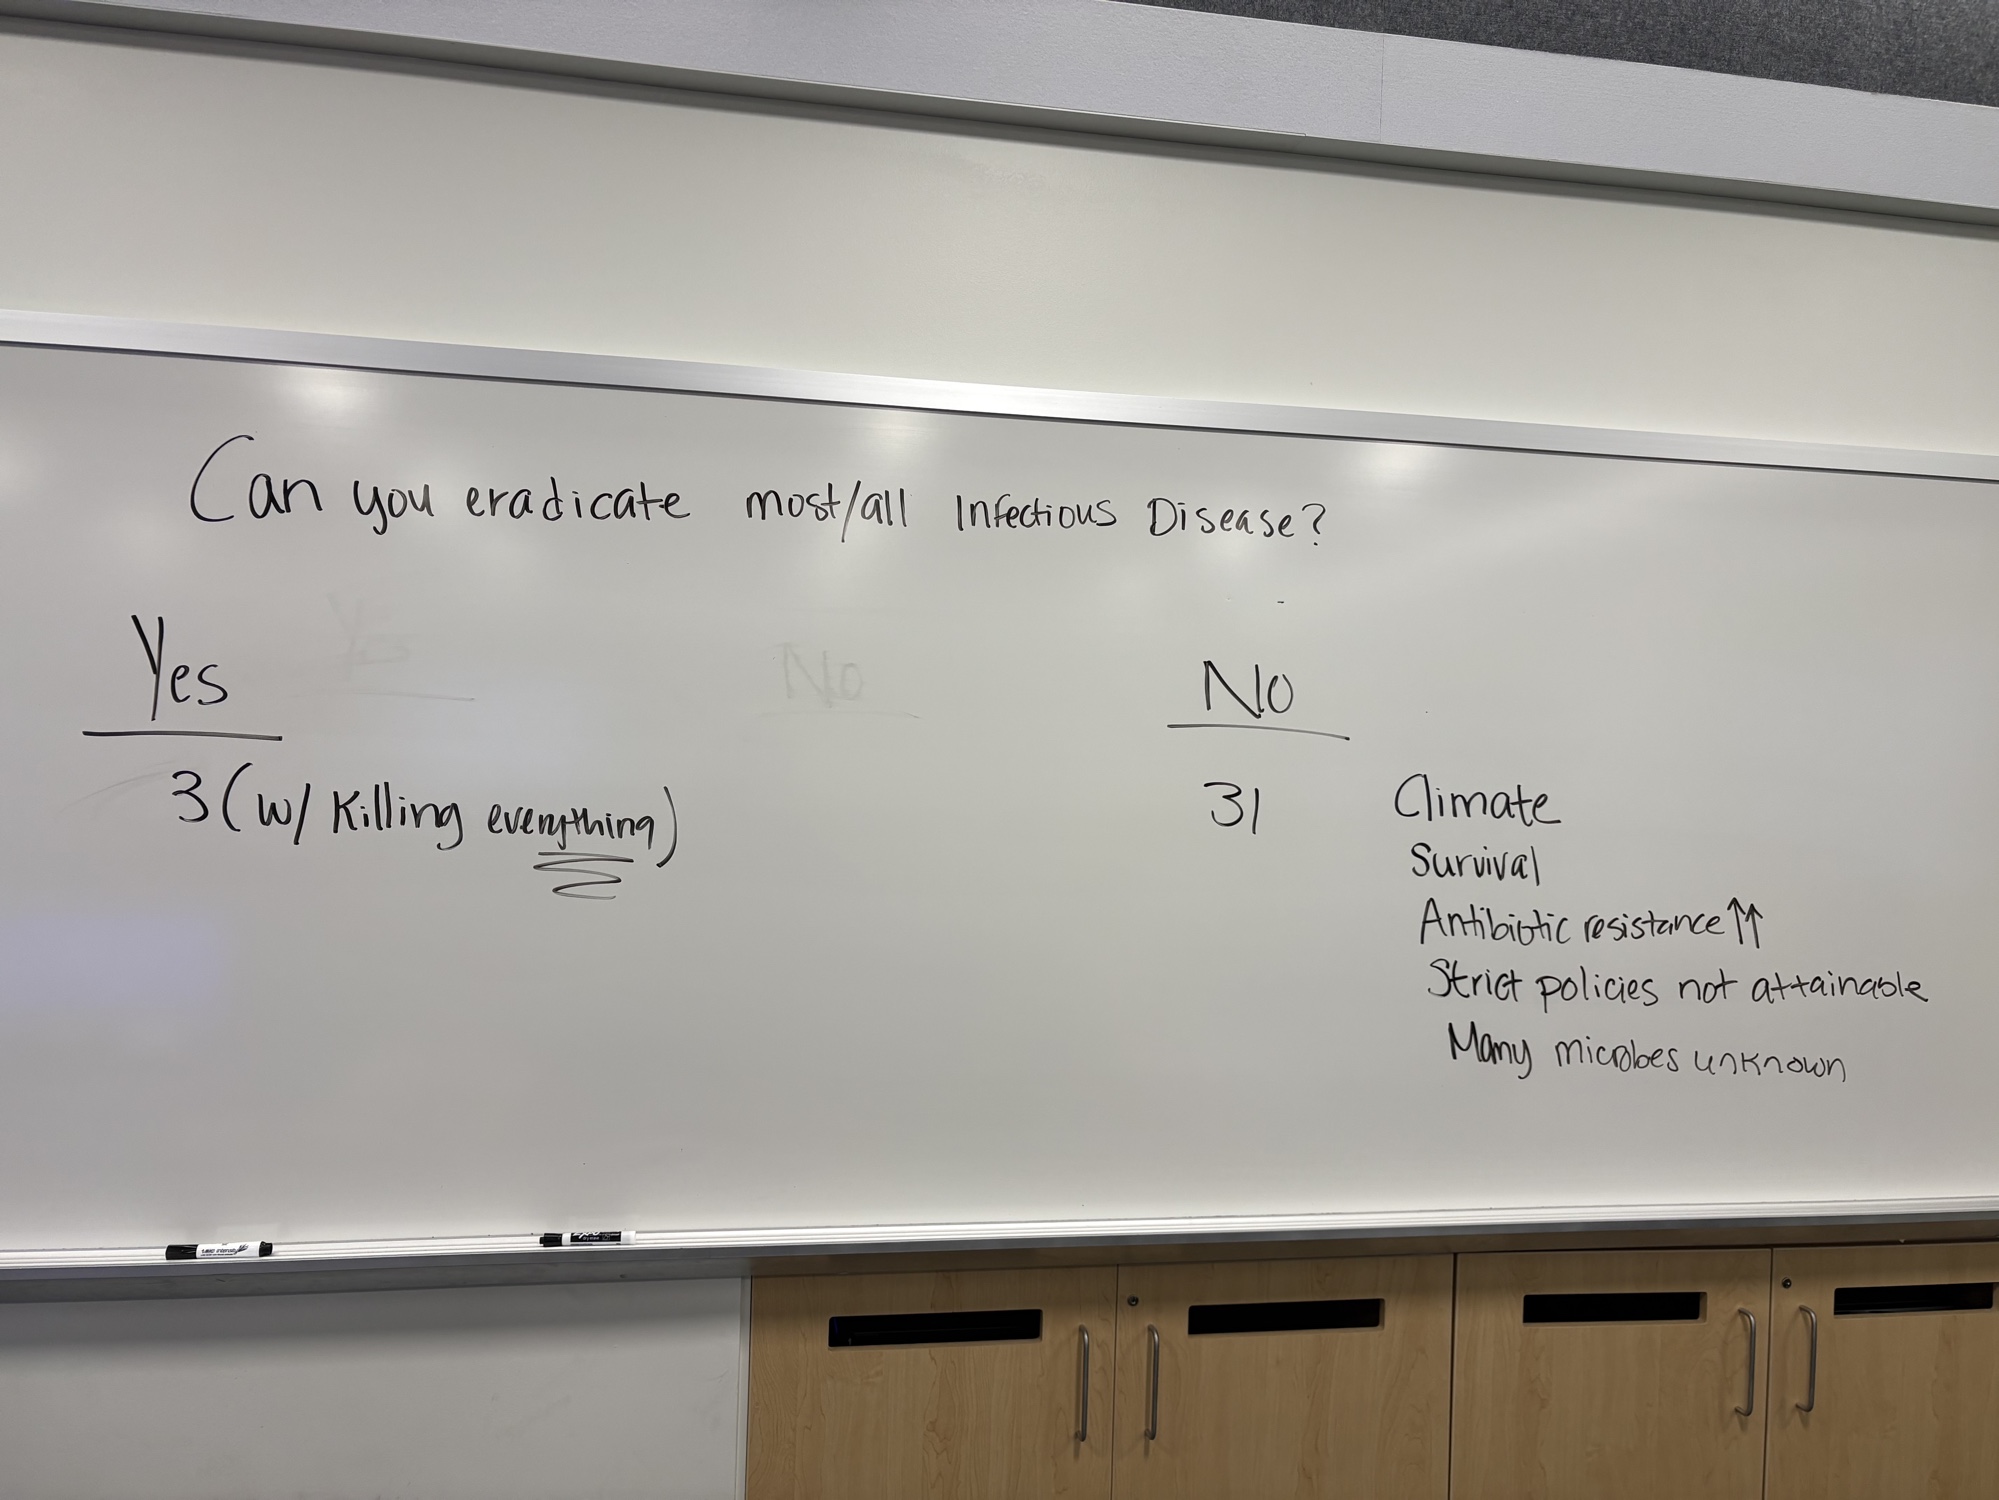 Can you eradicate most/all Infectious Disease?
Yes
No
Yes
No
3 (w/ Killing everything)
31
Climate
Survival
Antibiotic resistance ↑↑
Strict policies not attainable
Many microbes unknown
EXPO